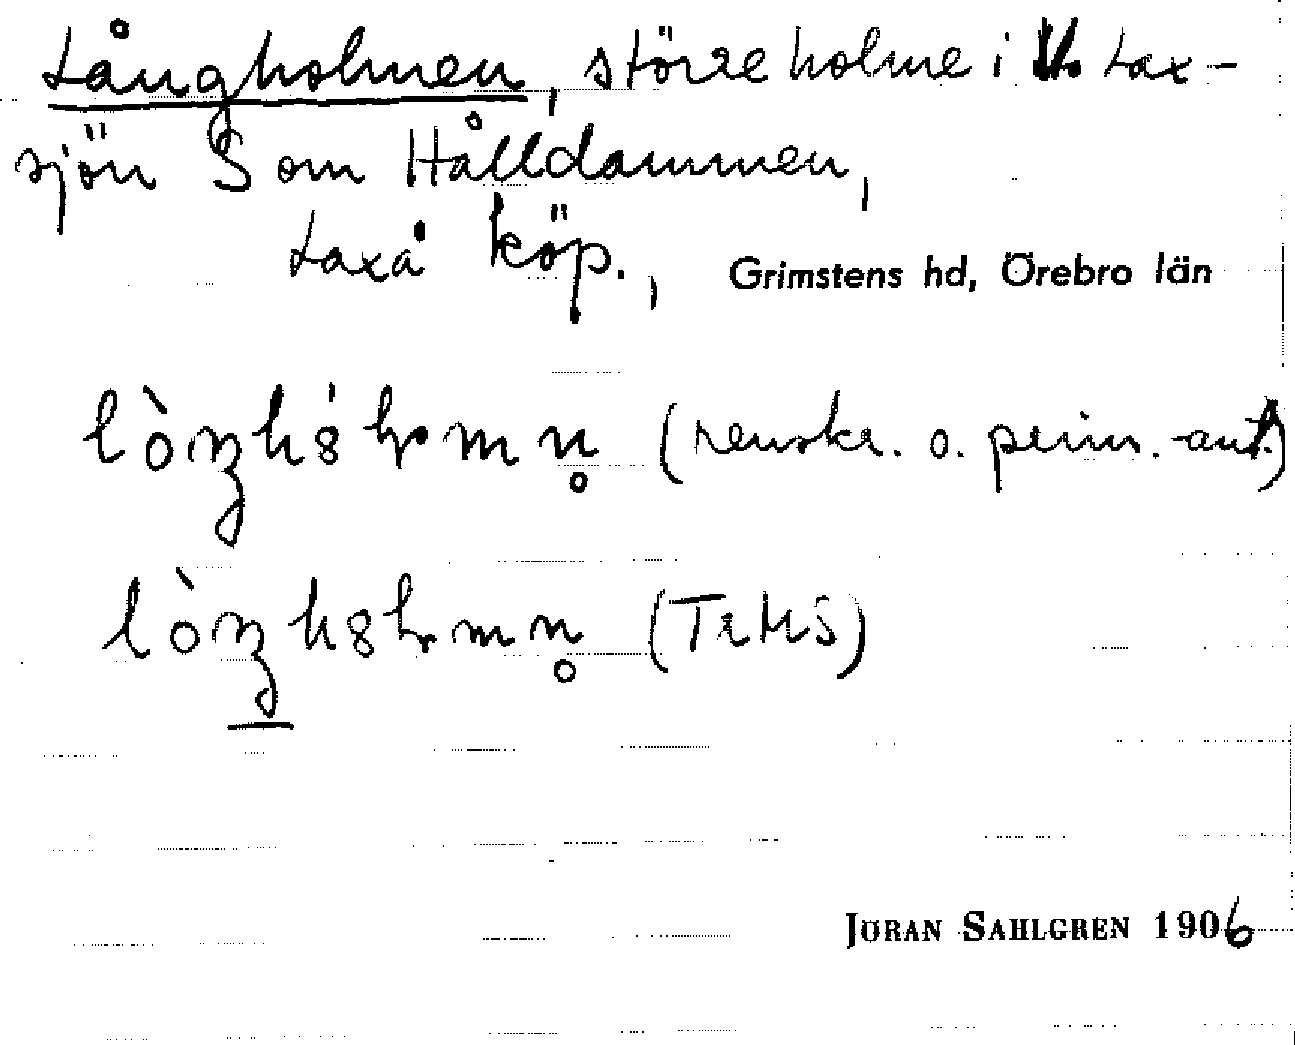 Långholmen, större holme i Lax-
sjön S om Hålldammen,
Laxå köp., Grimstens hd, Örebro län
(renskr. o. prim.-ant.)
(TrHS)
JÖRAN SAHLGREN 1906